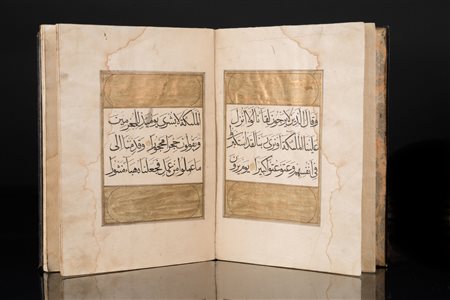 وقال الذين لا يرجون لقاءنا لولا انزل
علينا الملئكة او نرى ربنا لقد استكبروا
في انفسهم وعتو عتوا كبيرا يوم يرون
الملئكة لا بشرى يومئذ للمجرمين
ويقولون حجرا محجورا وقدمنا الى
ما عملوا من عمل فجعلناه هباء منثورا